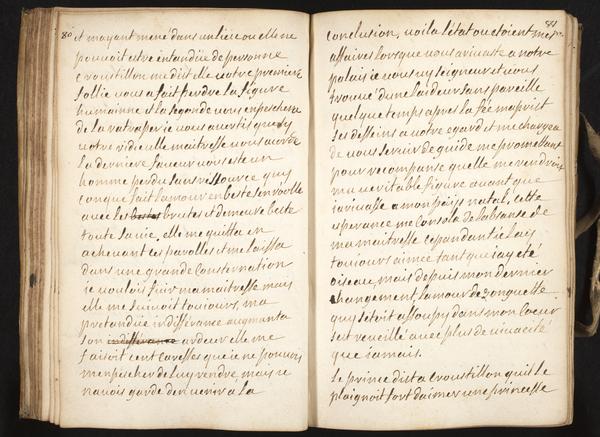 80 et mayant mené dans un lieu ou elle ne
pouvoit estre entandüe de personne
Croustillon me dit elle votre premiere
follie vous a fait perdre la figure
humainne et la segonde vous enpeschera
de la ratraper ie vous avertis que sy
votre ridicule maitresse vous acorde
la derniere faveur vous este un
homme perdu sans ressource quy
conque fait lamour en beste s'enrôolle
avec les bestes brutes et demeure beste
toute sa vie. elle me quitta en
achevant ces parolles et me laissa
dans une grande consternation
ie voulois fuir ma maitresse mais
elle me suivoit toujours, ma
pretandüe indifférance augmanta
son indifférance ardeur elle me
faisoit cent caresses que ie ne pouvois
menpescher de luy rendre, mais ie
navois garde den venir à la
81
conclusion, voila l'état ou étoient mes
affaires lorsque vous arivaste a notre
palais ie vous vy seigneur et vous
trouvé dune laideur sans pareille
quelque temps apres la fée maprist
ses desseins a votre egard et me chargea
de vous servir de guide me promettant
pour recompanse quelle me rendroit
ma veritable figure avant que
iarivasse a mon païs natal, cette
esperance me consola de labsance de
ma maitresse cependant ie lay
toujours aimée tant que iay été
oiseau, mais depuis mon dernier
changement, lamour de zonquette
quy setoit assoupy dans mon coeur
sest reveillé avec plus de vivacité
que iamais.
Le prince dist a Croustillon quil le
plaignoit fort daimer une princesse